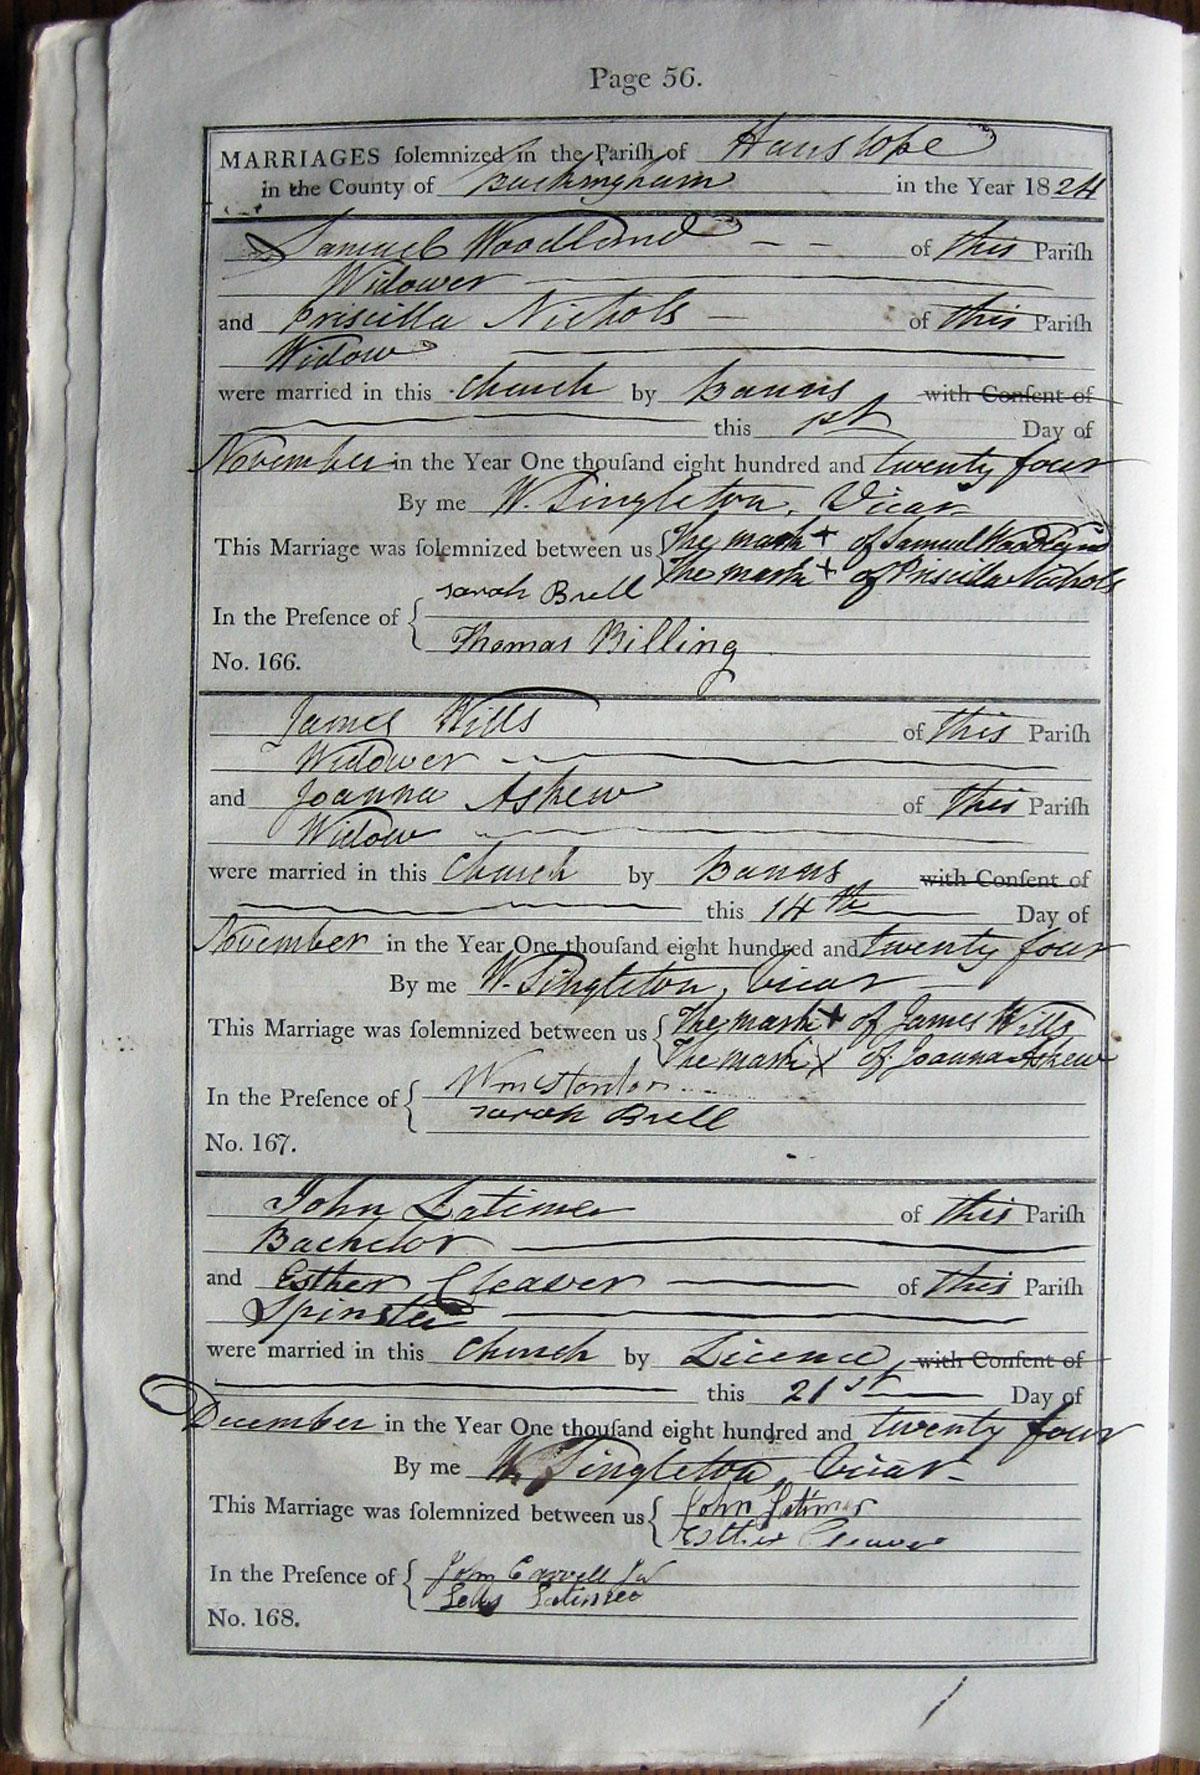 Page 56.
MARRIAGES ſolemnized in the Pariſh of Hanslope
in the County of Buckingham in the Year 1824
Samuel Woodland of this Pariſh
Widower
and Priscilla Nichols of this Pariſh
Widow
were married in this Church by Banns with Conſent of
this 1st Day of
November in the Year One thouſand eight hundred and twenty four
By me W. Singleton, Vicar
This Marriage was ſolemnized between us { The mark + of Samuel Woodland
The mark + of Priscilla Nichols
In the Preſence of { Sarah Brell
Thomas Billing
No. 166.
James Wills of this Pariſh
Widower
and Joanna Askew of this Pariſh
Widow
were married in this Church by Banns with Conſent of
this 14th Day of
November in the Year One thouſand eight hundred and twenty four
By me W. Singleton, Vicar
This Marriage was ſolemnized between us { The mark + of James Wills
The mark X of Joanna Askew
In the Preſence of { Wm
Sarah Brell
No. 167.
John Latimer of this Pariſh
Bachelor
and Esther Cleaver of this Pariſh
Spinster
were married in this Church by Licence, with Conſent of
this 21st Day of
December in the Year One thouſand eight hundred and twenty four
By me W. Singleton, Vicar
This Marriage was ſolemnized between us { John Latimer
Esther Cleaver
In the Preſence of { John
Latimer
No. 168.